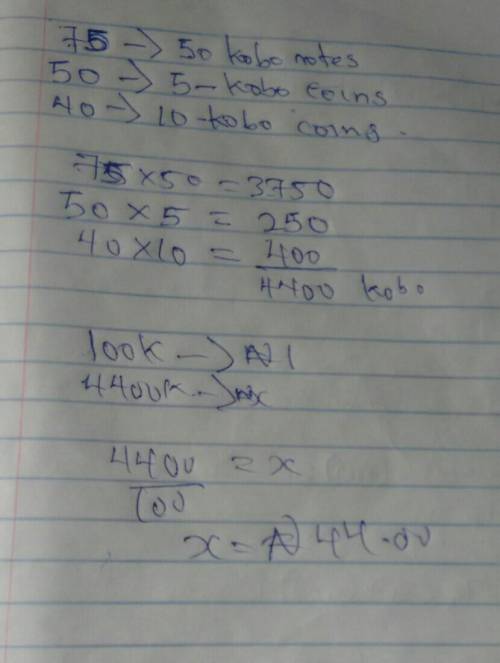 75 -> 50 kobo notes
50 -> 5-kobo coins
40 -> 10-kobo coins.
75 x 50 = 3750
50 x 5 = 250
40 x 10 = 400
4400 kobo
100K -> ₦1
4400K -> ₦x
4400 = x
100
x = ₦44.00